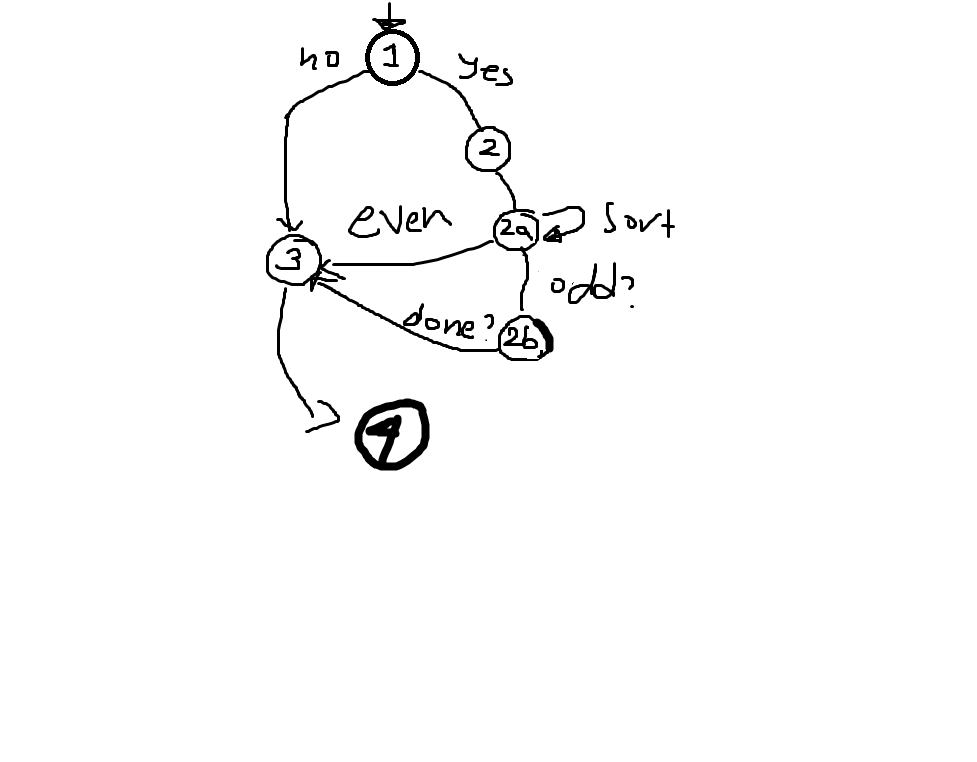 1
no
yes
2
even
2a
sort
3
odd?
done?
2b
4